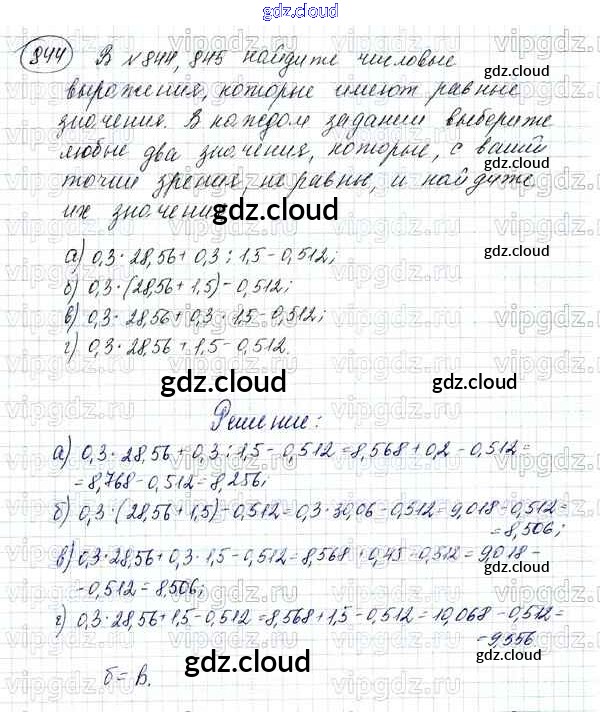 gdz.cloud
844 В №844, 845 найдите числовые
выражения, которые имеют равные
значения. В каждом задании выберите
любые два значения, которые, с вашей
точки зрения, не равны, и найдите
их значения
а) 0,3 · 28,56 + 0,3 : 1,5 - 0,512;
б) 0,3 · (28,56 + 1,5) - 0,512;
в) 0,3 · 28,56 + 0,3 · 1,5 - 0,512;
г) 0,3 · 28,56 + 1,5 - 0,512.
Решение:
а) 0,3 · 28,56 + 0,3 : 1,5 - 0,512 = 8,568 + 0,2 - 0,512 =
= 8,768 - 0,512 = 8,256;
б) 0,3 · (28,56 + 1,5) - 0,512 = 0,3 · 30,06 - 0,512 = 9,018 - 0,512 =
= 8,506;
в) 0,3 · 28,56 + 0,3 · 1,5 - 0,512 = 8,568 + 0,45 - 0,512 = 9,018 -
- 0,512 = 8,506;
г) 0,3 · 28,56 + 1,5 - 0,512 = 8,568 + 1,5 - 0,512 = 10,068 - 0,512 =
= 9,556
б = в.
gdz.cloud
gdz.cloud
gdz.cloud
gdz.cloud
gdz.cloud
gdz.cloud
gdz.cloud
gdz.cloud
gdz.cloud